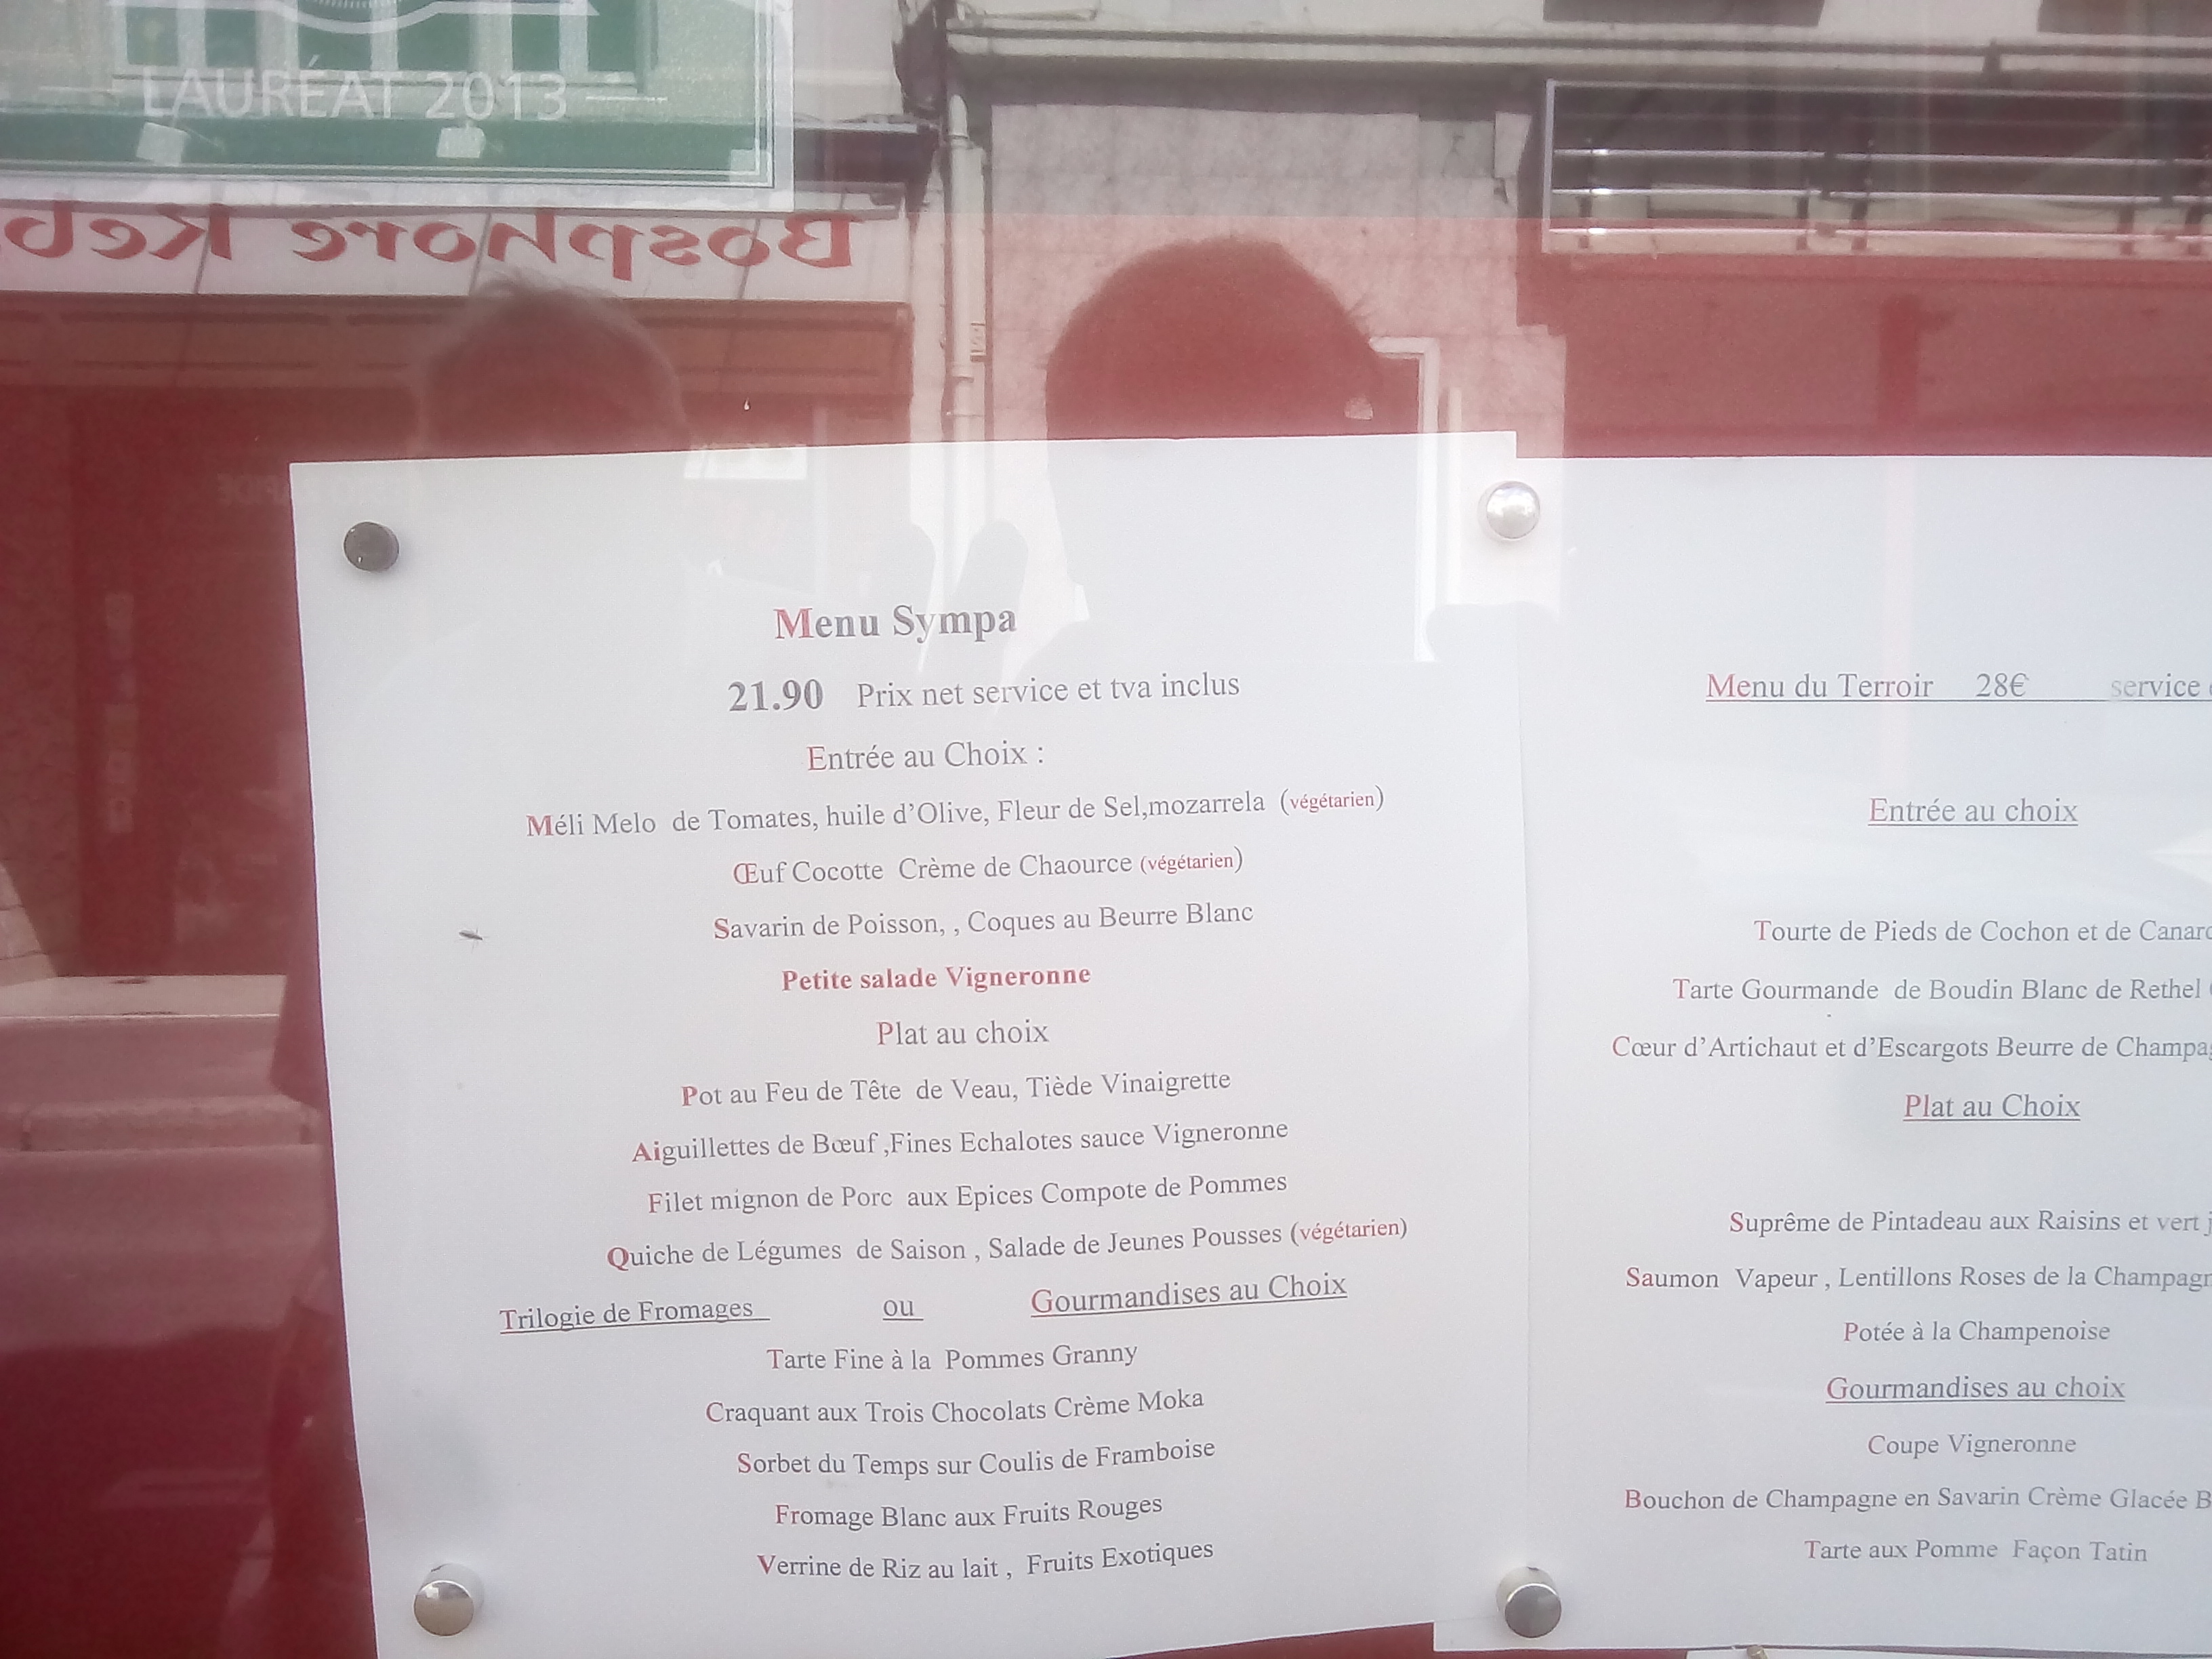 LAURÉAT 2013
Bosphore Keb
Menu Sympa
21.90 Prix net service et tva inclus
Entrée au Choix :
Méli Melo de Tomates, huile d'Olive, Fleur de Sel,mozarrela (végétarien)
Œuf Cocotte Crème de Chaource (végétarien)
Savarin de Poisson, , Coques au Beurre Blanc
Petite salade Vigneronne
Plat au choix
Pot au Feu de Tête de Veau, Tiède Vinaigrette
Aiguillettes de Bœuf ,Fines Echalotes sauce Vigneronne
Filet mignon de Porc aux Epices Compote de Pommes
Quiche de Légumes de Saison , Salade de Jeunes Pousses (végétarien)
Trilogie de Fromages ou Gourmandises au Choix
Tarte Fine à la Pommes Granny
Craquant aux Trois Chocolats Crème Moka
Sorbet du Temps sur Coulis de Framboise
Fromage Blanc aux Fruits Rouges
Verrine de Riz au lait , Fruits Exotiques
Menu du Terroir 28€ service
Entrée au choix
Tourte de Pieds de Cochon et de Canard
Tarte Gourmande de Boudin Blanc de Rethel
Cœur d'Artichaut et d'Escargots Beurre de Champa
Plat au Choix
Suprême de Pintadeau aux Raisins et vert j
Saumon Vapeur , Lentillons Roses de la Champag
Potée à la Champenoise
Gourmandises au choix
Coupe Vigneronne
Bouchon de Champagne en Savarin Crème Glacée B
Tarte aux Pomme Façon Tatin